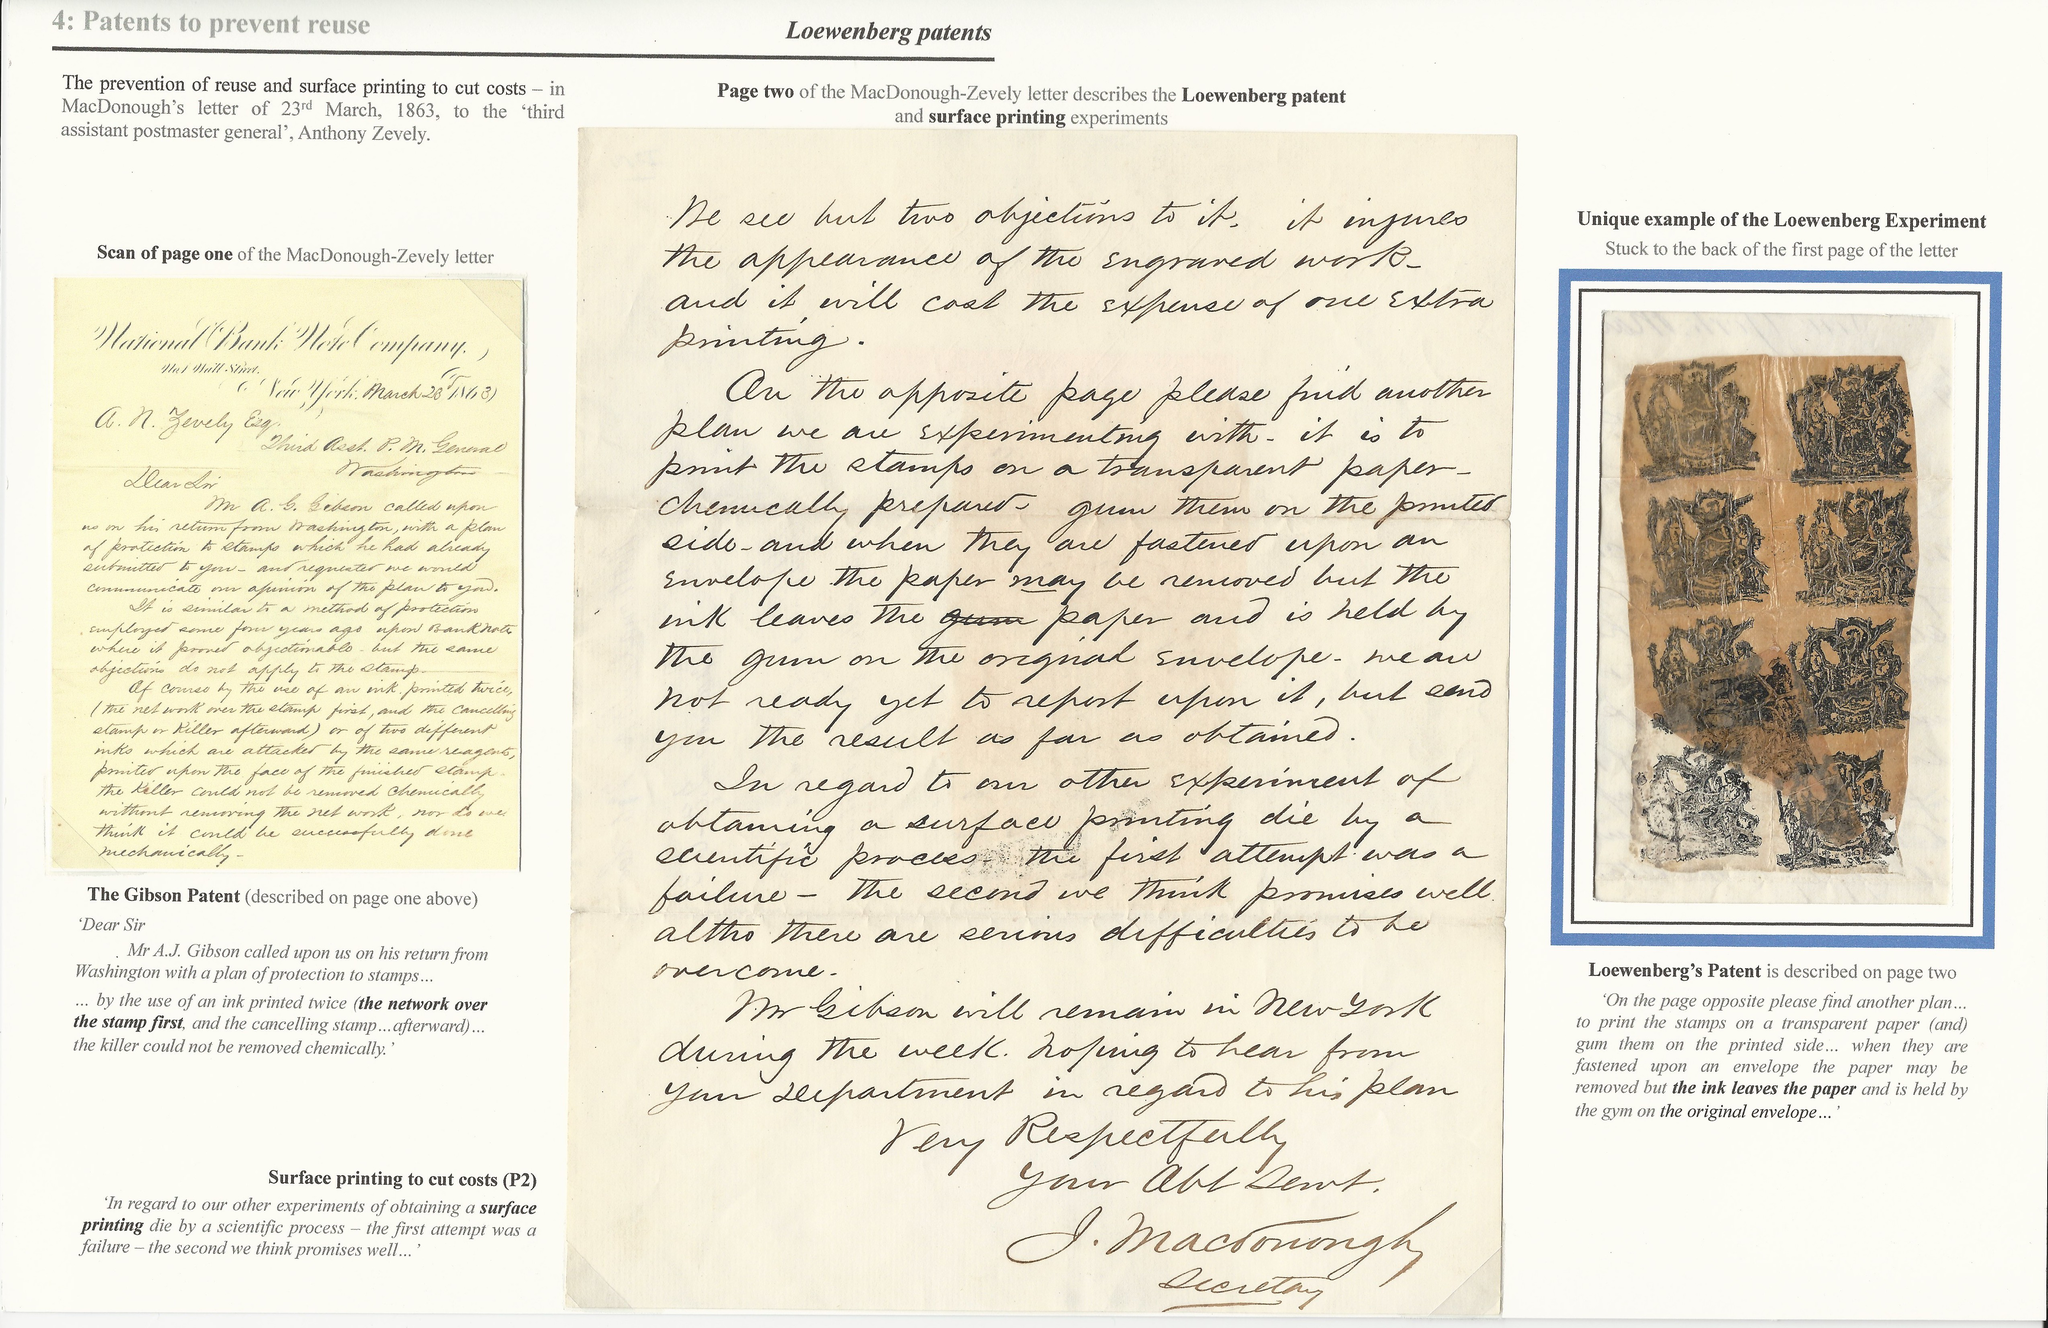 4: Patents to prevent reuse
Loewenberg patents
The prevention of reuse and surface printing to cut costs – in
MacDonough's letter of 23rd March, 1863, to the 'third
assistant postmaster general', Anthony Zevely.
Scan of page one of the MacDonough-Zevely letter
National Bank Note Company.
No 1 Wall Street.
New York, March 23d 1863
A. N. Zevely Esq.
Third Asst. P. M. General
Washington
Dear Sir
Mr A. G. Gibson called upon
us on his return from Washington, with a plan
of protection to stamps which he had already
submitted to you – and requested we would
communicate our opinion of the plan to you.
It is similar to a method of protection
employed some four years ago upon Bank Note
where it proved objectionable - but the same
objections do not apply to the stamp –
Of course by the use of an ink printed twice,
(the net work over the stamp first, and the cancelling
stamp or Killer afterward) or of two different
inks which are attacked by the same reagents,
printed upon the face of the finished stamp –
the Killer could not be removed chemically
without removing the net work, nor do we
think it could be successfully done
mechanically –
The Gibson Patent (described on page one above)
'Dear Sir
. Mr A.J. Gibson called upon us on his return from
Washington with a plan of protection to stamps…
… by the use of an ink printed twice (the network over
the stamp first, and the cancelling stamp…afterward)…
the killer could not be removed chemically.'
Surface printing to cut costs (P2)
'In regard to our other experiments of obtaining a surface
printing die by a scientific process – the first attempt was a
failure – the second we think promises well…'
Page two of the MacDonough-Zevely letter describes the Loewenberg patent
and surface printing experiments
We see but two objections to it. it injures
the appearance of the engraved work –
and it will cost the expense of one extra
printing.
On the opposite page please find another
plan we are experimenting with – it is to
print the stamps on a transparent paper –
chemically prepared – gum them on the printed
side – and when they are fastened upon an
envelope the paper may be removed but the
ink leaves the gum paper and is held by
the gum on the original envelope – we are
not ready yet to report upon it, but send
you the result as far as obtained.
In regard to our other experiment of
obtaining a surface printing die by a
scientific process – the first attempt was a
failure – the second we think promises well
altho there are serious difficulties to be
overcome –
Mr Gibson will remain in New York
during the week. hoping to hear from
your Department in regard to his plan
Very Respectfully
Your Obt Servt.
J. Macdonough
Secretary
Unique example of the Loewenberg Experiment
Stuck to the back of the first page of the letter
Loewenberg's Patent is described on page two
'On the page opposite please find another plan…
to print the stamps on a transparent paper (and)
gum them on the printed side… when they are
fastened upon an envelope the paper may be
removed but the ink leaves the paper and is held by
the gym on the original envelope…'